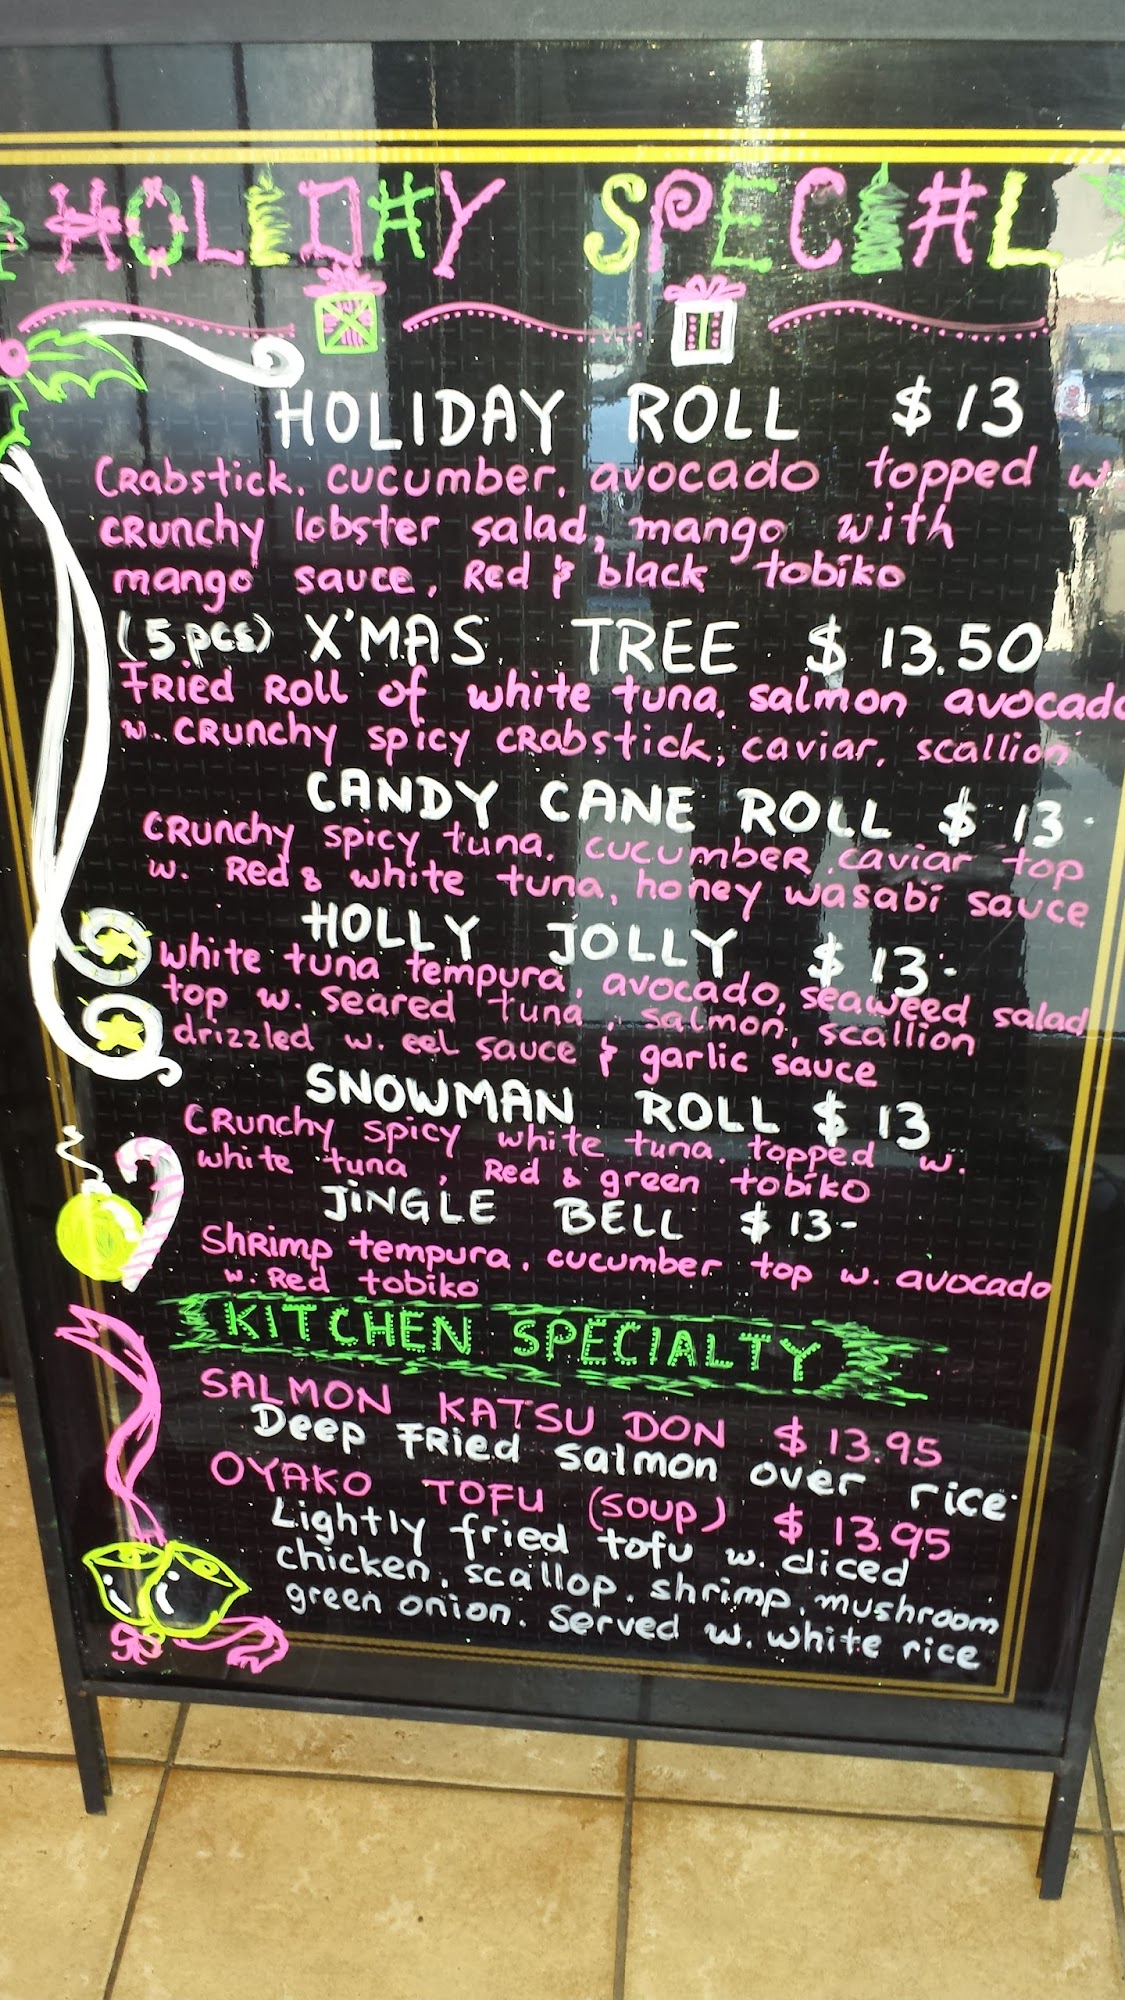 HOLIDAY SPECIAL
HOLIDAY ROLL $13
Crabstick, cucumber, avocado topped w.
crunchy lobster salad, mango with
mango sauce, Red & black tobiko
(5 pcs) X'MAS TREE $13.50
Fried Roll of white tuna, salmon avocado
w. crunchy spicy crabstick, caviar, scallion
CANDY CANE ROLL $13-
Crunchy spicy tuna, cucumber caviar top
w. Red & white tuna, honey wasabi sauce
HOLLY JOLLY $13-
white tuna tempura, avocado, seaweed salad
top w. seared tuna, salmon, scallion
drizzled w. eel sauce & garlic sauce
SNOWMAN ROLL $13
Crunchy spicy white tuna, topped w.
white tuna, Red & green tobiko
JiNGLE BELL $13-
Shrimp tempura, cucumber top w. avocado
w. Red tobiko
KITCHEN SPECIALTY
SALMON KATSU DON $13.95
Deep Fried salmon over rice
OYAKO TOFU (SOUP) $13.95
Lightly fried tofu w. diced
chicken, scallop, shrimp, mushroom
green onion. Served w. white rice